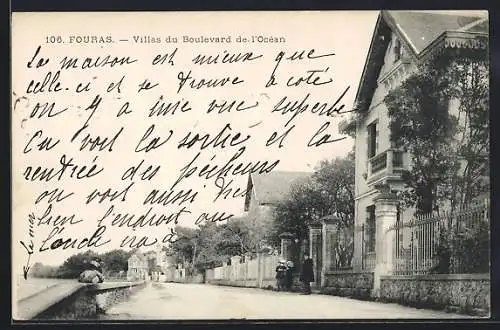 106. FOURAS. — Villas du Boulevard de l'Océan
La maison est mieux que
celle-ci et se trouve à coté
on y a une vue superbe
on voit la sortie et la
rentrée des pécheurs
on voit aussi très
bien l'endroit où
l'on couchera
la mer